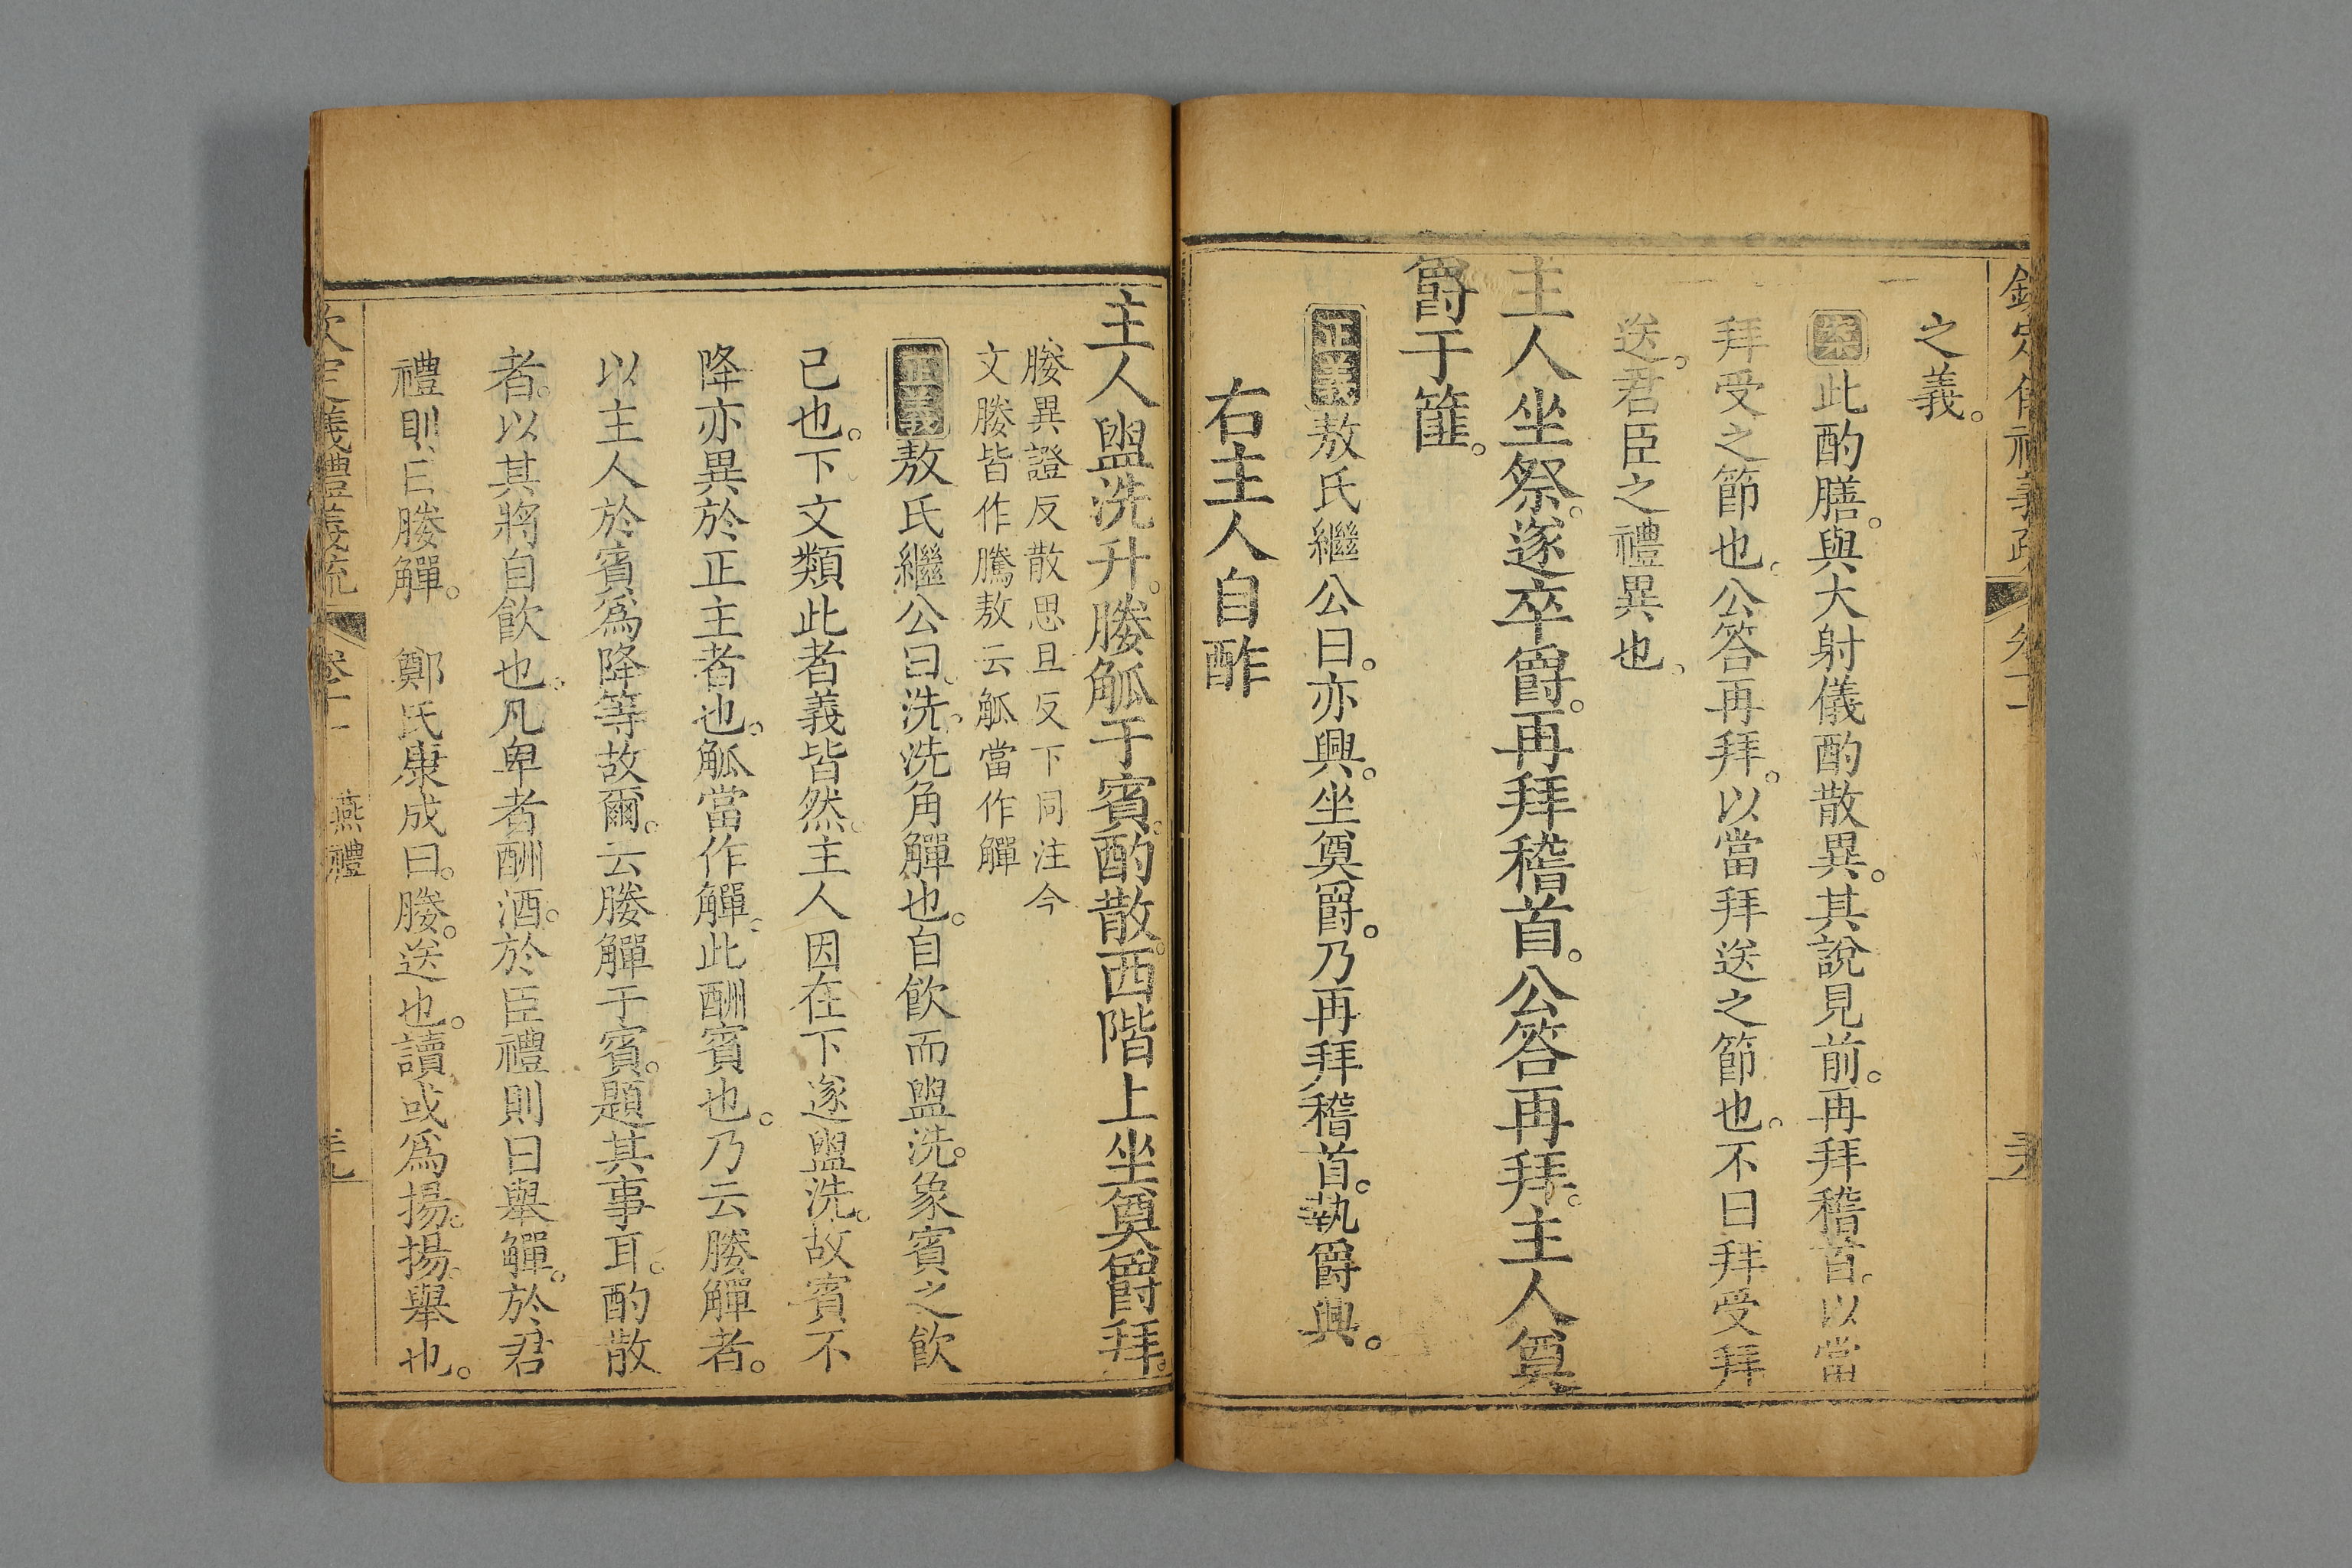 之義。
案此酌膳。與大射儀酌散異。其說見前。再拜稽首。以當
拜受之節也。公答再拜。以當拜送之節也。不曰拜受拜
送。君臣之禮異也。
主人坐祭。遂卒爵。再拜稽首。公答再拜。主人奠
爵于篚。
正義敖氏繼公曰。亦興。坐奠爵。乃再拜稽首。執爵興。
右主人自酢
主人盥洗升。媵觚于賓。酌散。西階上坐奠爵拜。
媵異證反散思旦反下同注今
文媵皆作騰敖云觚當作觶
正義敖氏繼公曰。洗。洗角觶也。自飲而盥洗。象賓之飲
己也。下文類此者義皆然。主人因在下遂盥洗。故賓不
降亦異於正主者也。觚當作觶。此酬賓也。乃云媵觶者。
以主人於賓爲降等故爾。云媵觶于賓。題其事耳。酌散
者。以其將自飲也。凡卑者酬酒。於臣禮則曰舉觶。於君
禮則曰媵觶。 鄭氏康成曰。媵。送也。讀或爲揚。揚。舉也。
欽定義禮義疏 卷十一 燕禮